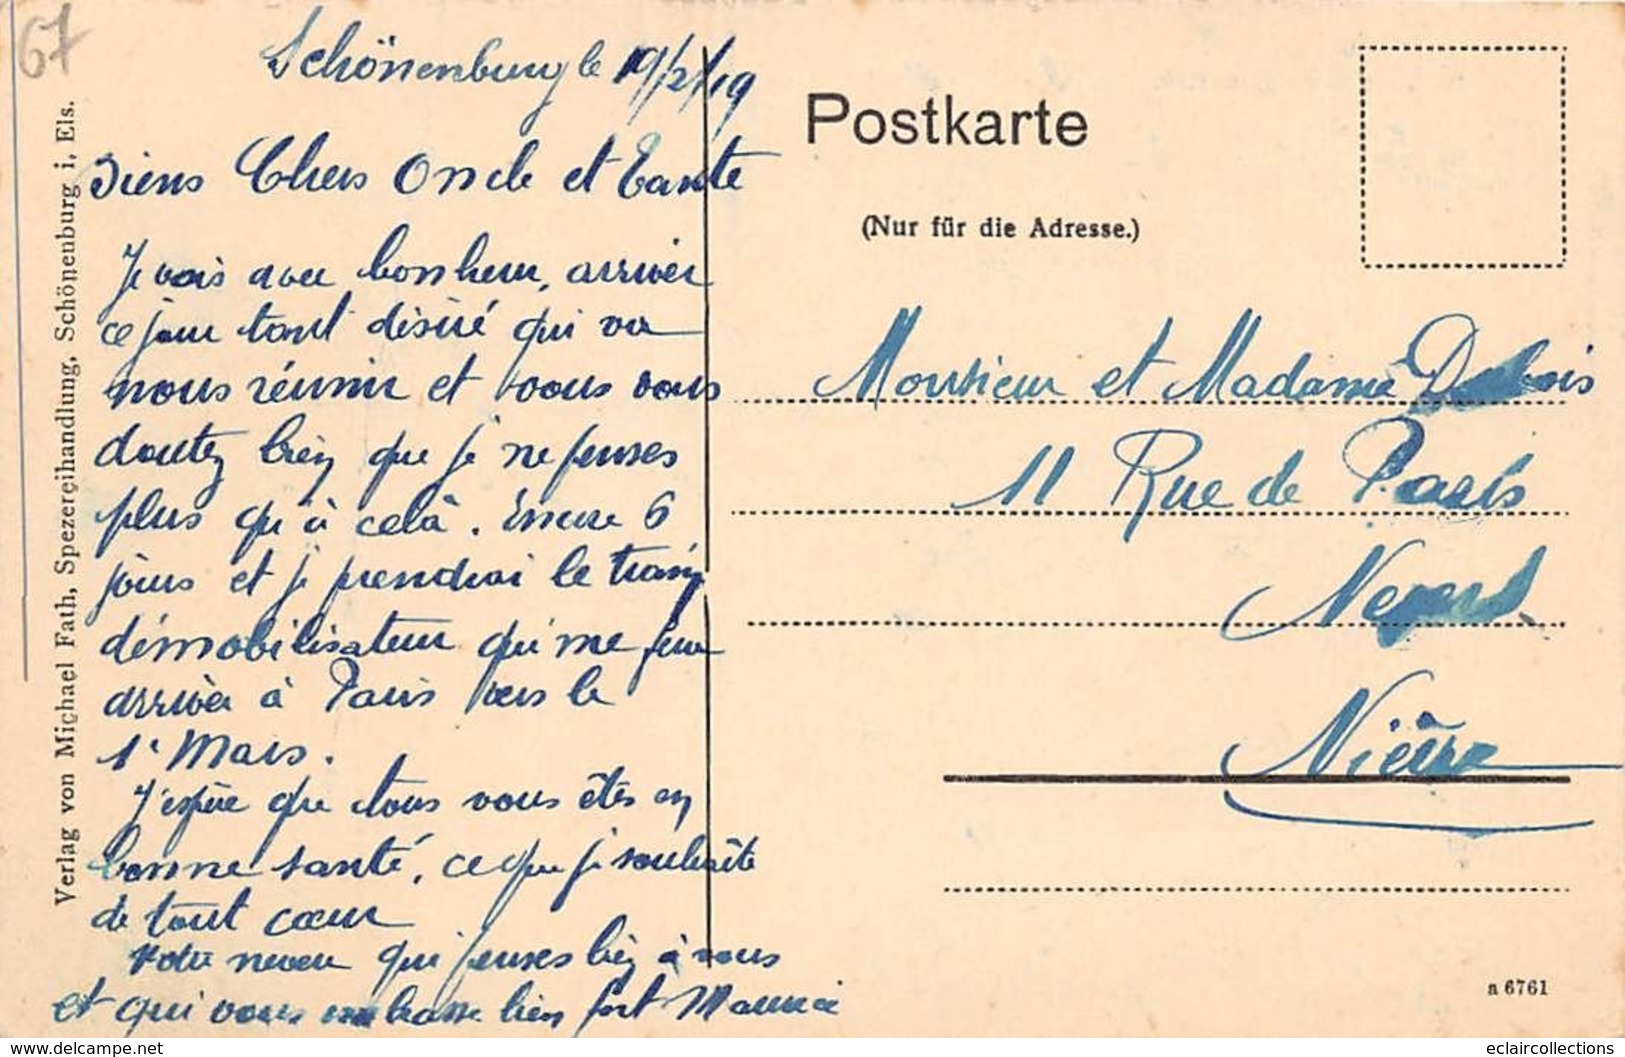 67
Schönenburg le 19/2/19
Biens Chers Oncle et Tante
Je vois avec bonheur, arriver
ce jour tant désiré qui va
nous réunir et vous vous
doutez bien que je ne penses
plus qu'à celà. Encore 6
jours et je prendrai le train
démobilisateur qui me fera
arriver à Paris vers le
1r Mars.
J'espère que tous vous êtes en
bonne santé, ce que je souhaite
de tout cœur
Votre neveu qui penses bien à vous
et qui vous embrasse bien fort Maurice
Verlag von Michael Fath, Spezereihandlung, Schönenburg i. Els.
Postkarte
(Nur für die Adresse.)
Monsieur et Madame Dubois
11 Rue de Paris
Nevers
Nièvre
a 6761
www.delcampe.net
eclaircollections